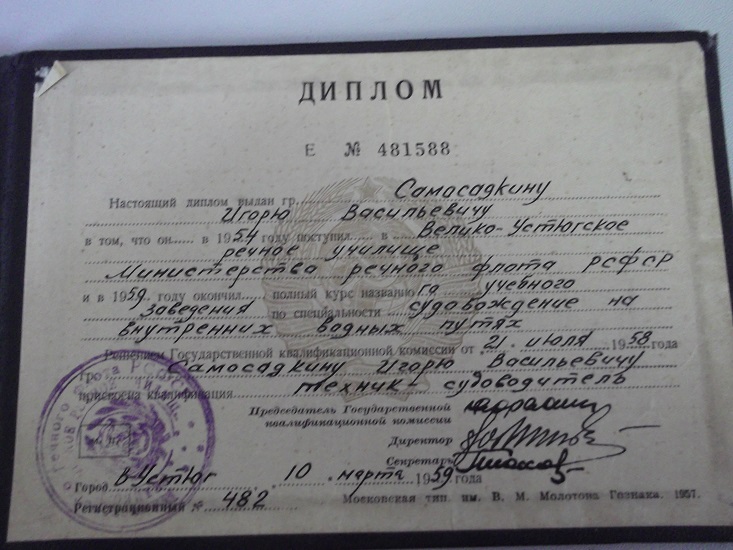 ДИПЛОМ
Е № 481588
Настоящий диплом выдан гр. Самосадкину
Игорю Васильевичу
в том, что он в 1954 году поступил в Велико-Устюгское
речное училище
Министерства речного флота РСФСР
и в 1959 году окончил полный курс названного учебного
заведения по специальности судовождение на
внутренних водных путях
Решением Государственной квалификационной комиссии от 21 июля 1958 года
гр. Самосадкину Игорю Васильевичу
присвоена квалификация техник-судоводитель
Председатель Государственной
квалификационной комиссии
Директор
Секретарь
Город В-Устюг 10 марта 1959 года
Регистрационный № 482
Московская тип. им. В. М. Молотова Гознака. 1957.